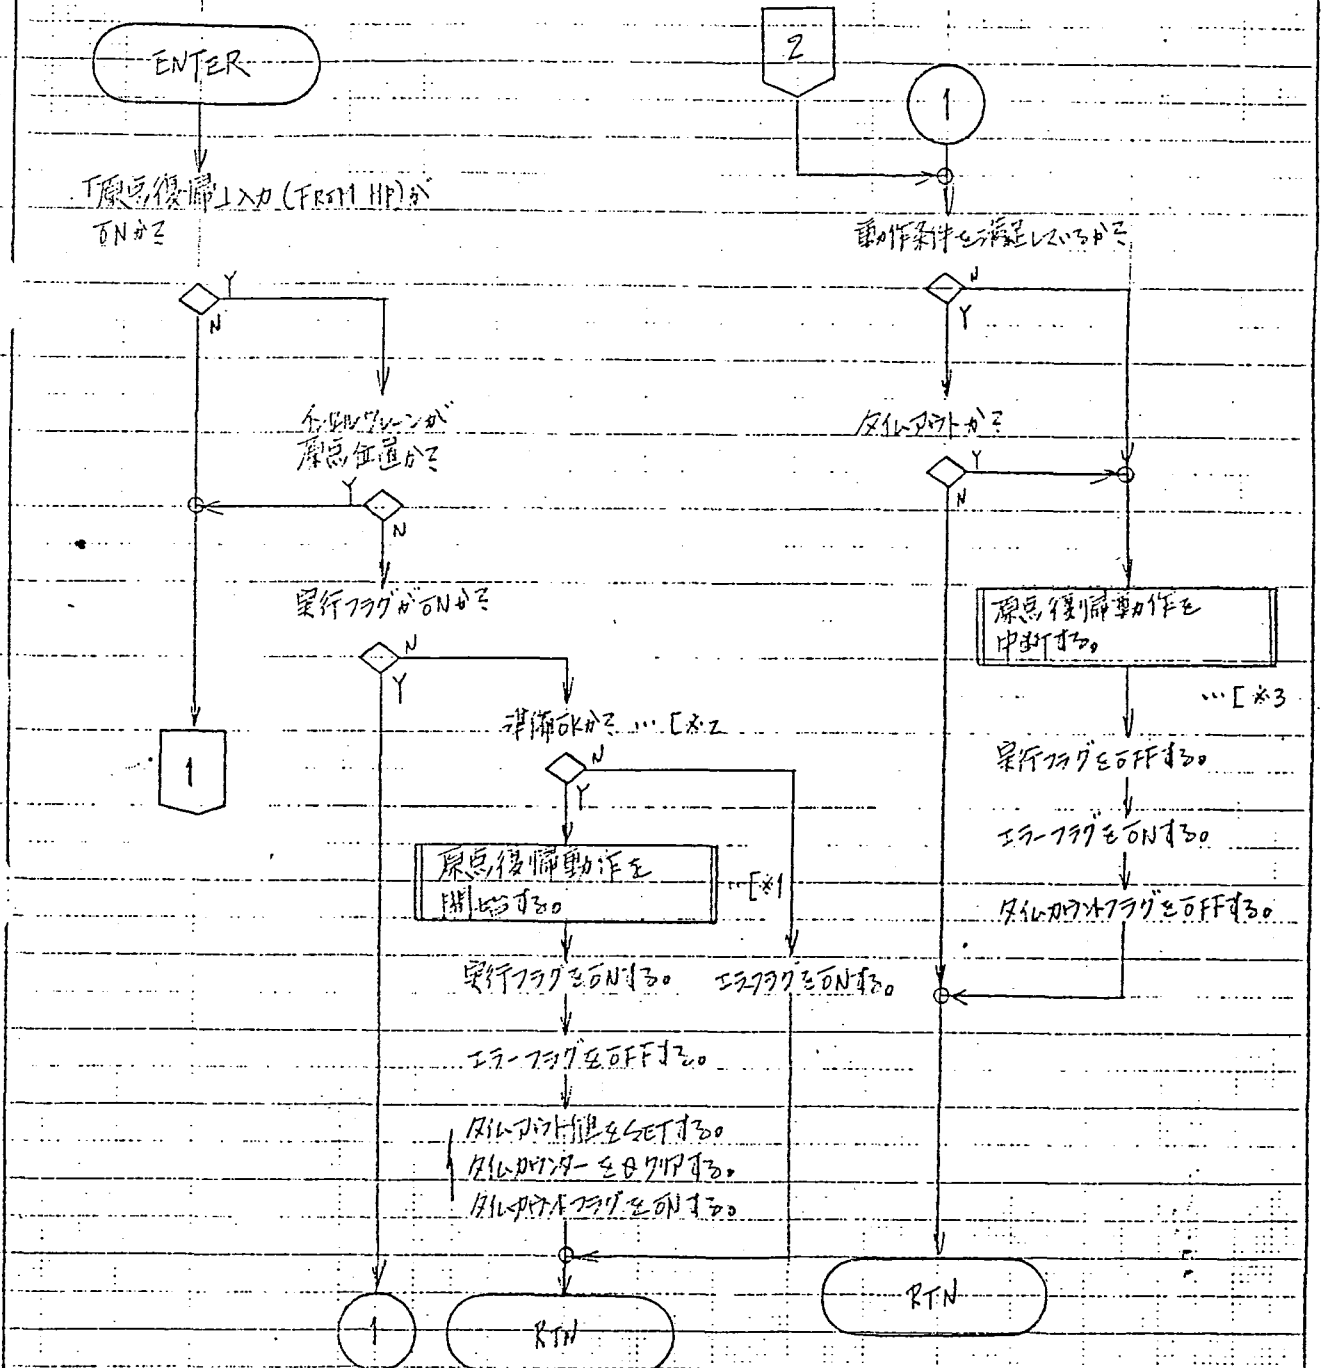 ENTER
「原点復帰」入力 (FROM HP)が
ONか?
Y
N
原点位置か?
Y
N
実行フラグがONか?
N
Y
準備OKか? … [※2
N
Y
1
原点復帰動作を
開始する。
…[※1
実行フラグをONする。
エラフラグをONする。
エラーフラグをOFFする。
タイムアウト値をSETする。
タイムカウンターを0クリアする。
タイムカウントフラグをONする。
1
RTN
2
1
動作条件を満足しているか?
N
Y
タイムアウトか?
Y
N
原点復帰動作を
中断する。
…[※3
実行フラグをOFFする。
エラーフラグをONする。
タイムカウントフラグをOFFする。
RTN